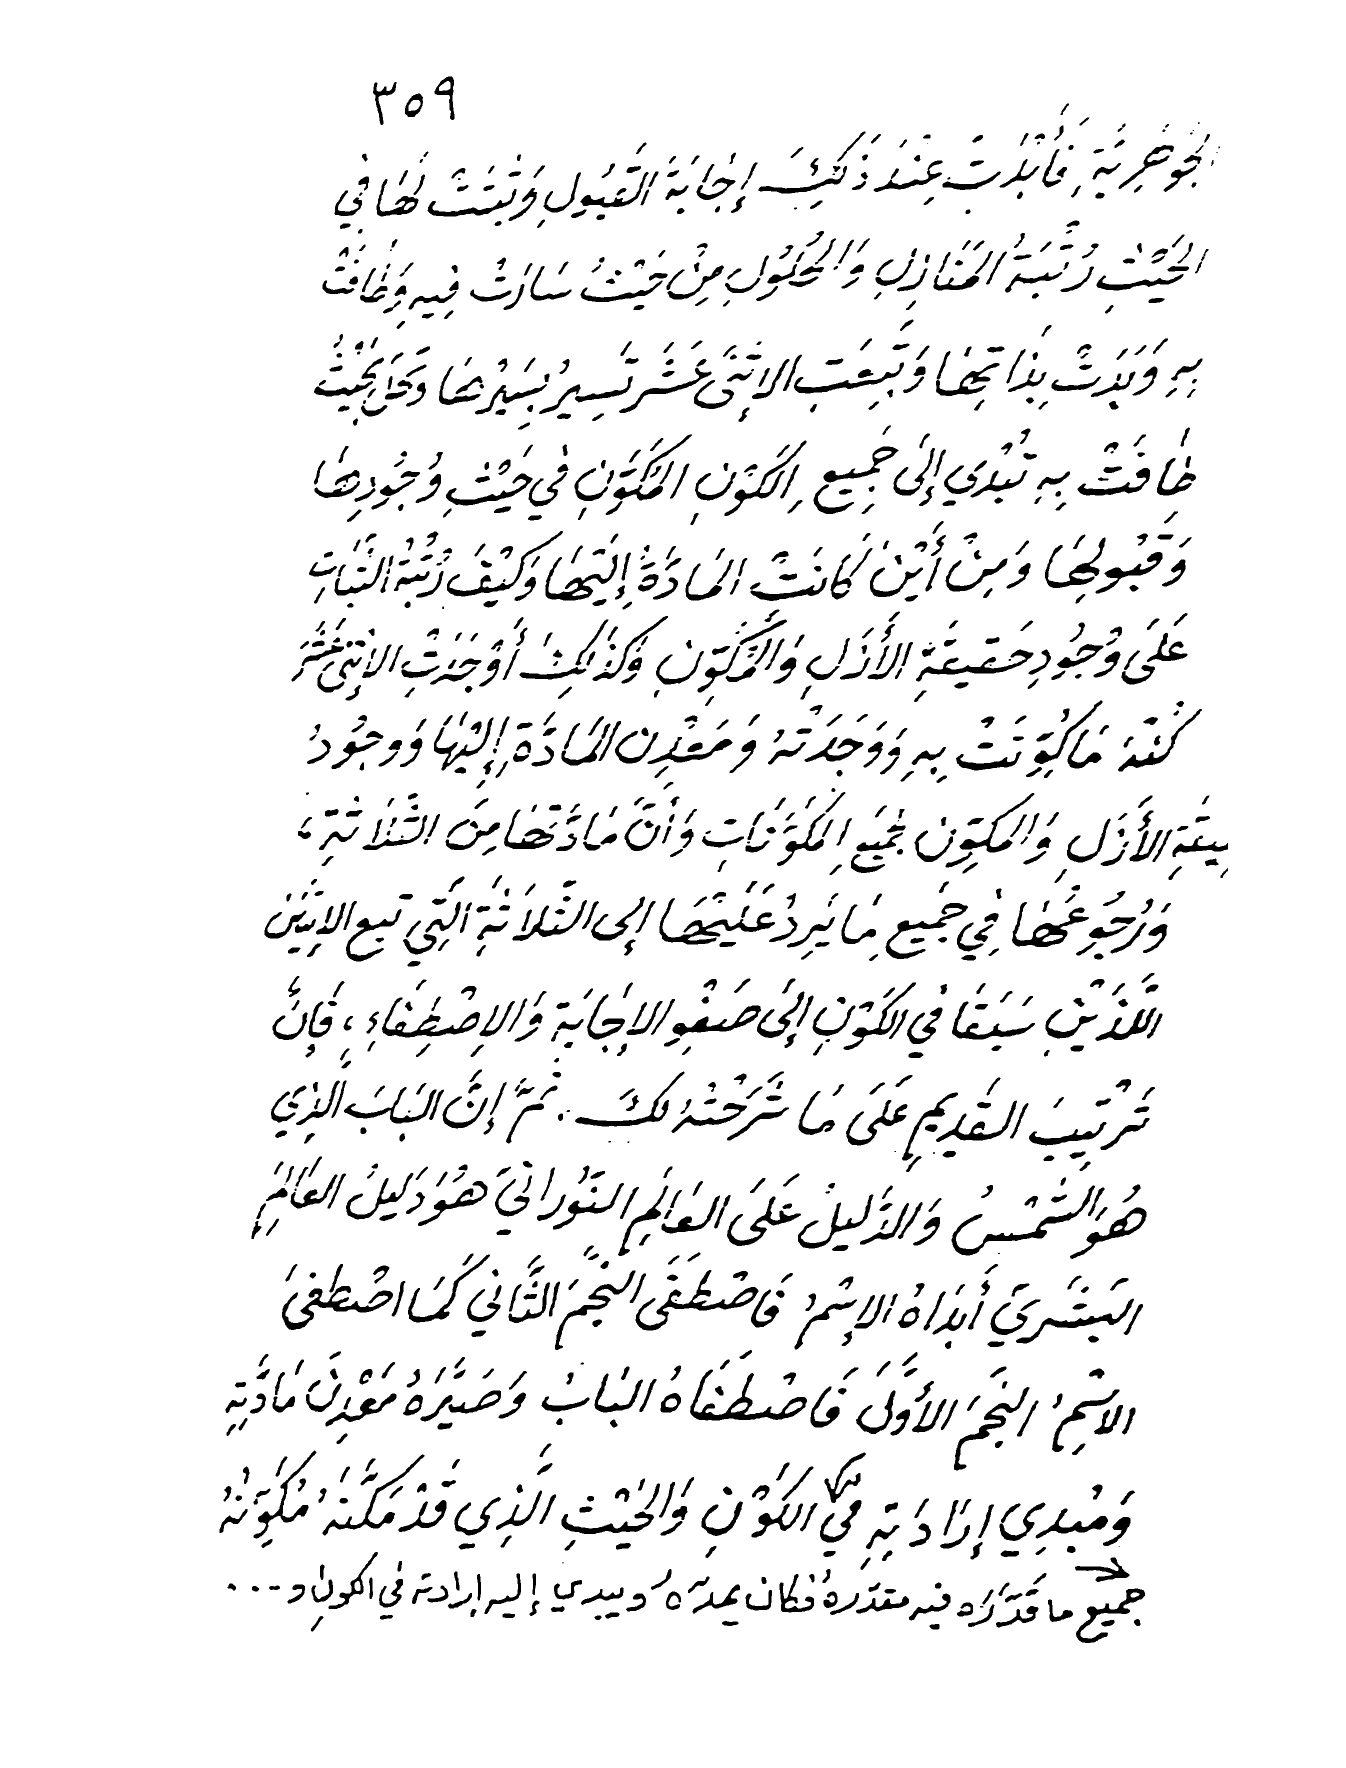 ٣٥٩
الجَوْهَرِيَّةِ، فَأَبْدَتْ عِنْدَ ذَلِكَ إِجَابَةَ القَبُولِ وَثَبَتَتْ لَهَا فِي
الحَيْثِ رُتْبَةُ المَنَازِلِ وَالحُلُولِ مِنْ حَيْثُ سَارَتْ فِيهِ وَطَافَتْ
بِهِ وَبَدَتْ بِذَاتِهَا وَتَبِعَتِ الاِثْنَى عَشَرَ تَسِيرُ بِسَيْرِهَا وَتَحُلُّ بِحَيْثُ
طَافَتْ بِهِ تُبْدِي إِلَى جَمِيعِ الكَوْنِ المُكَوَّنِ فِي حَيْثِ وُجُودِهَا
وَقَبُولِهَا وَمِنْ أَيْنَ كَانَتْ المَادَّةُ إِلَيْهَا وَكَيْفَ رُتْبَةُ الثَّبَاتِ
عَلَى وُجُودِ حَقِيقَةِ الأَزَلِ وَالمُكَوِّنِ وَكَذَلِكَ أَوْجَدَتِ الاِثْنَى عَشَرَ
كُنْهَ مَا كُوِّنَتْ بِهِ وَوَجَدَتْهُ وَمَعْدِنَ المَادَّةِ إِلَيْهَا وَوجُودُ
ـيقَةِ الأَزَلِ وَالمكَوِّنِ لجَمِيعِ المُكَوَّنَاتِ وَأَنَّ مَادَّتَهَا مِنَ الثَّلَاثَةِ،
وَرُجُوعُهَا فِي جَمِيعِ مَا يَرِدُ عَلَيْهَا إِلى الثَّلَاثَةِ الَّتِي تبع الاِثْنَيْن
اللَّذَيْنِ سَبَقَا فِي الكَوْنِ إِلَى صَفْوِ الإِجَابَةِ وَالاِصْطِفَاءِ، فَإِنَّ
تَرْتِيبَ القَدِيمِ عَلَى مَا شَرَحْتُهُ لَكَ. ثُمَّ إِنَّ البَابَ الَّذِي
هُوَ الشَّمْسُ وَالدَّلِيلُ عَلَى العَالَمِ النُّورَانِيِّ هُوَ دَلِيلُ العَالَمِ
البَشَرِيِّ أَبْدَاهُ الاِسْمُ فَاصْطَفَى النَّجْمَ الثَّانِي كَمَا اصْطَفَى
الاِسْمُ النَّجْمَ الأَوَّلَ فَاصْطَفَاهُ البَابُ وَصَيَّرَهُ مَعْدِنَ مَادَّتِهِ
وَمُبْدِي إِرَادَتِهِ فِي الكَوْنِ وَالحَيْثِ الَّذِي قَدْ مَكَّنَهُ مُكَوِّنُهُ
جميعُ ما قَدَّرَه فيه مقدّرهُ فكان يمدّهُ ويبدي إليه إرادته في الكونِ و...